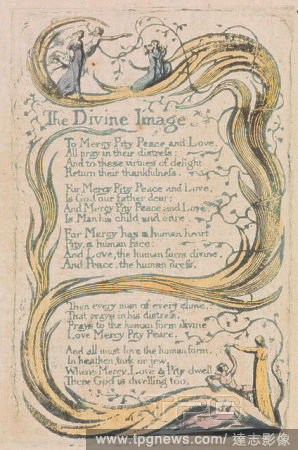 The Divine Image
To Mercy Pity Peace and Love,
All pray in their distress:
And to these virtues of delight
Return their thankfulness.
For Mercy Pity Peace and Love,
Is God our father dear:
And Mercy Pity Peace and Love,
Is Man his child and care.
For Mercy has a human heart
Pity, a human face:
And Love, the human form divine,
And Peace, the human dress.
Then every man of every clime,
That prays in his distress,
Prays to the human form divine
Love Mercy Pity Peace.
And all must love the human form,
In heathen, turk or jew.
Where Mercy, Love & Pity dwell,
There God is dwelling too.
www.tpgnews.com / 達志影像